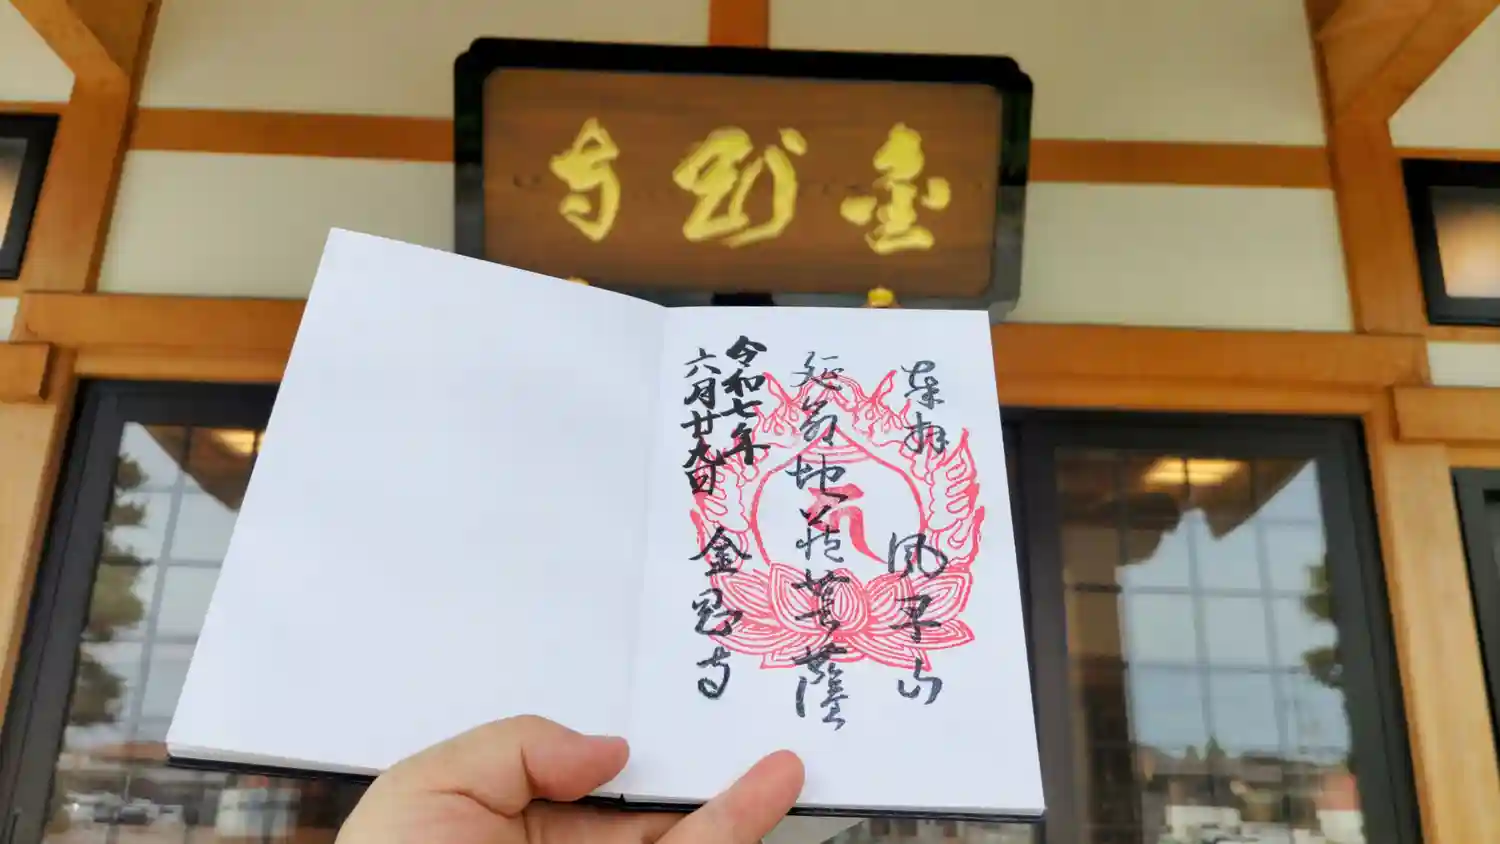 金剛寺
奉拝
延命地蔵菩薩
令和七年
六月廿九日
金剛寺